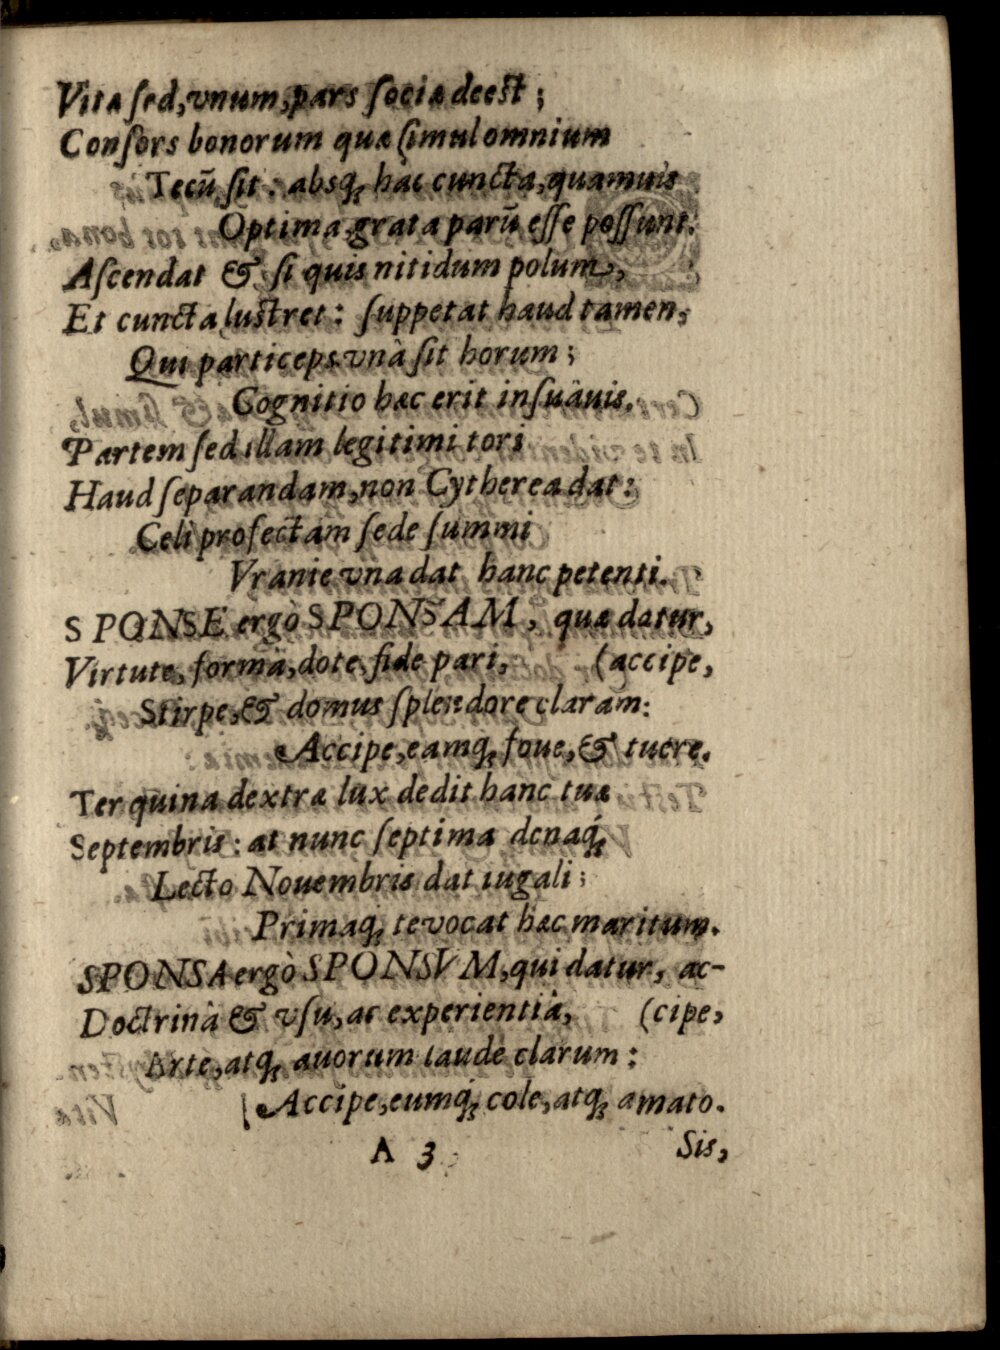 Vitæ ſed, vnum, pars ſociæ deeſt;
Conſors bonorum quæ ſimul omnium
Tecū ſit: absq; hac cuncta, quamuis
Optima, grata parū eſſe poſſunt.
Aſcendat & ſi quis nitidum polum,
Et cuncta luſtret: ſuppetat haud tamen,
Qui particeps vnà ſit horum;
Cognitio hæc erit inſuàuis.
Partem ſed illam legitimi tori
Haud ſeparandam, non Cytherea dat:
Celi profectam ſede ſummi
Vranie vna dat hanc petenti.
SPONSE ergò SPONSAM, quæ datur,
Virtute, formâ, dote, fide pari, (accipe,
Stirpe, & domus ſplendore claram:
Accipe, eamq; foue, & tuere.
Ter quina dextræ lux dedit hanc tuæ
Septembris: at nunc ſeptima denaq́;
Lecto Nouembris dat iugali;
Primaq; te vocat hæc maritum.
SPONSA ergò SPONSVM, qui datur, ac-
Doctrinâ & vſu, ac experientiâ, (cipe,
Arte, atq; auorum laude clarum:
Accipe, eumq́; cole, atq; amato.
A 3 Sis,